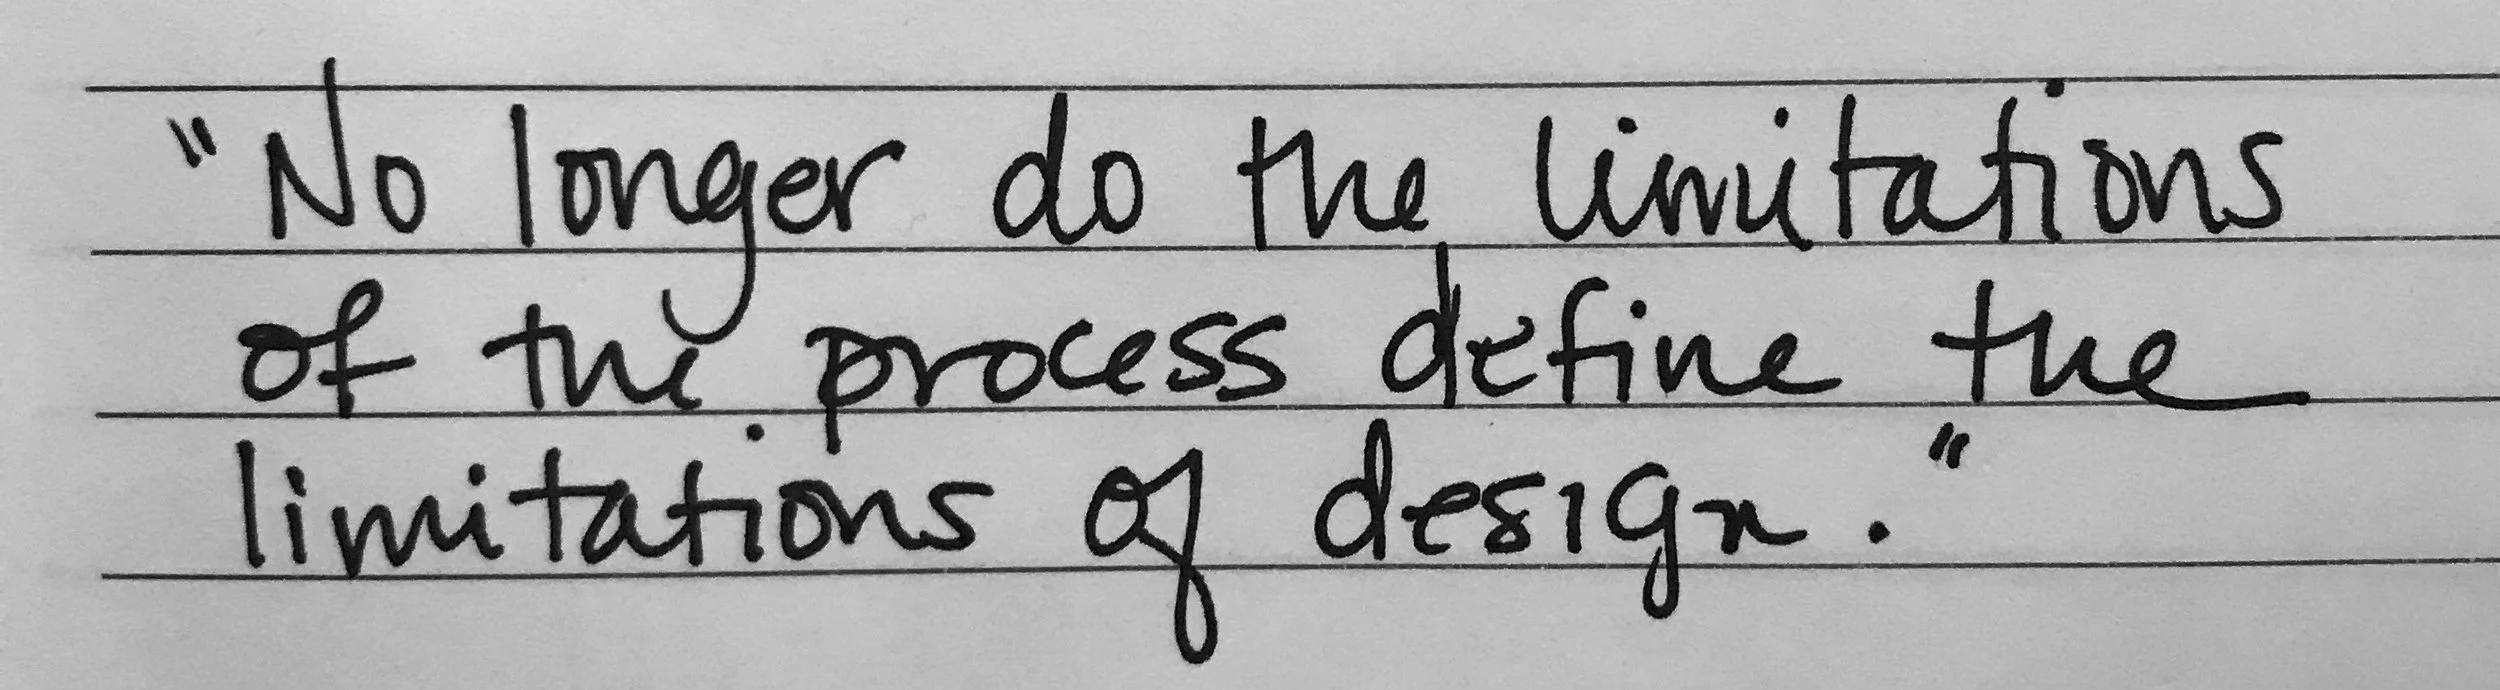 "No longer do the limitations
of the process define the
limitations of design."